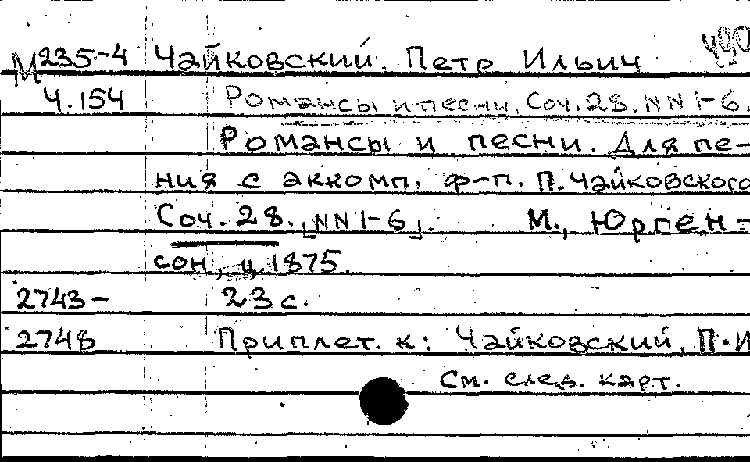 М 235-4 Чайковский, Петр Ильич
Ч.154 Романсы и песни. Соч. 28. NN 1-6.
Романсы и песни. Для пе-
ния с аккомп. ф-п. П. Чайковского
Соч. 28. [NN 1-6]. М., Юрген-
сон, ц. 1875.
2743- 23 с.
2748 Приплет. к: Чайковский, П.И
См. след. карт.